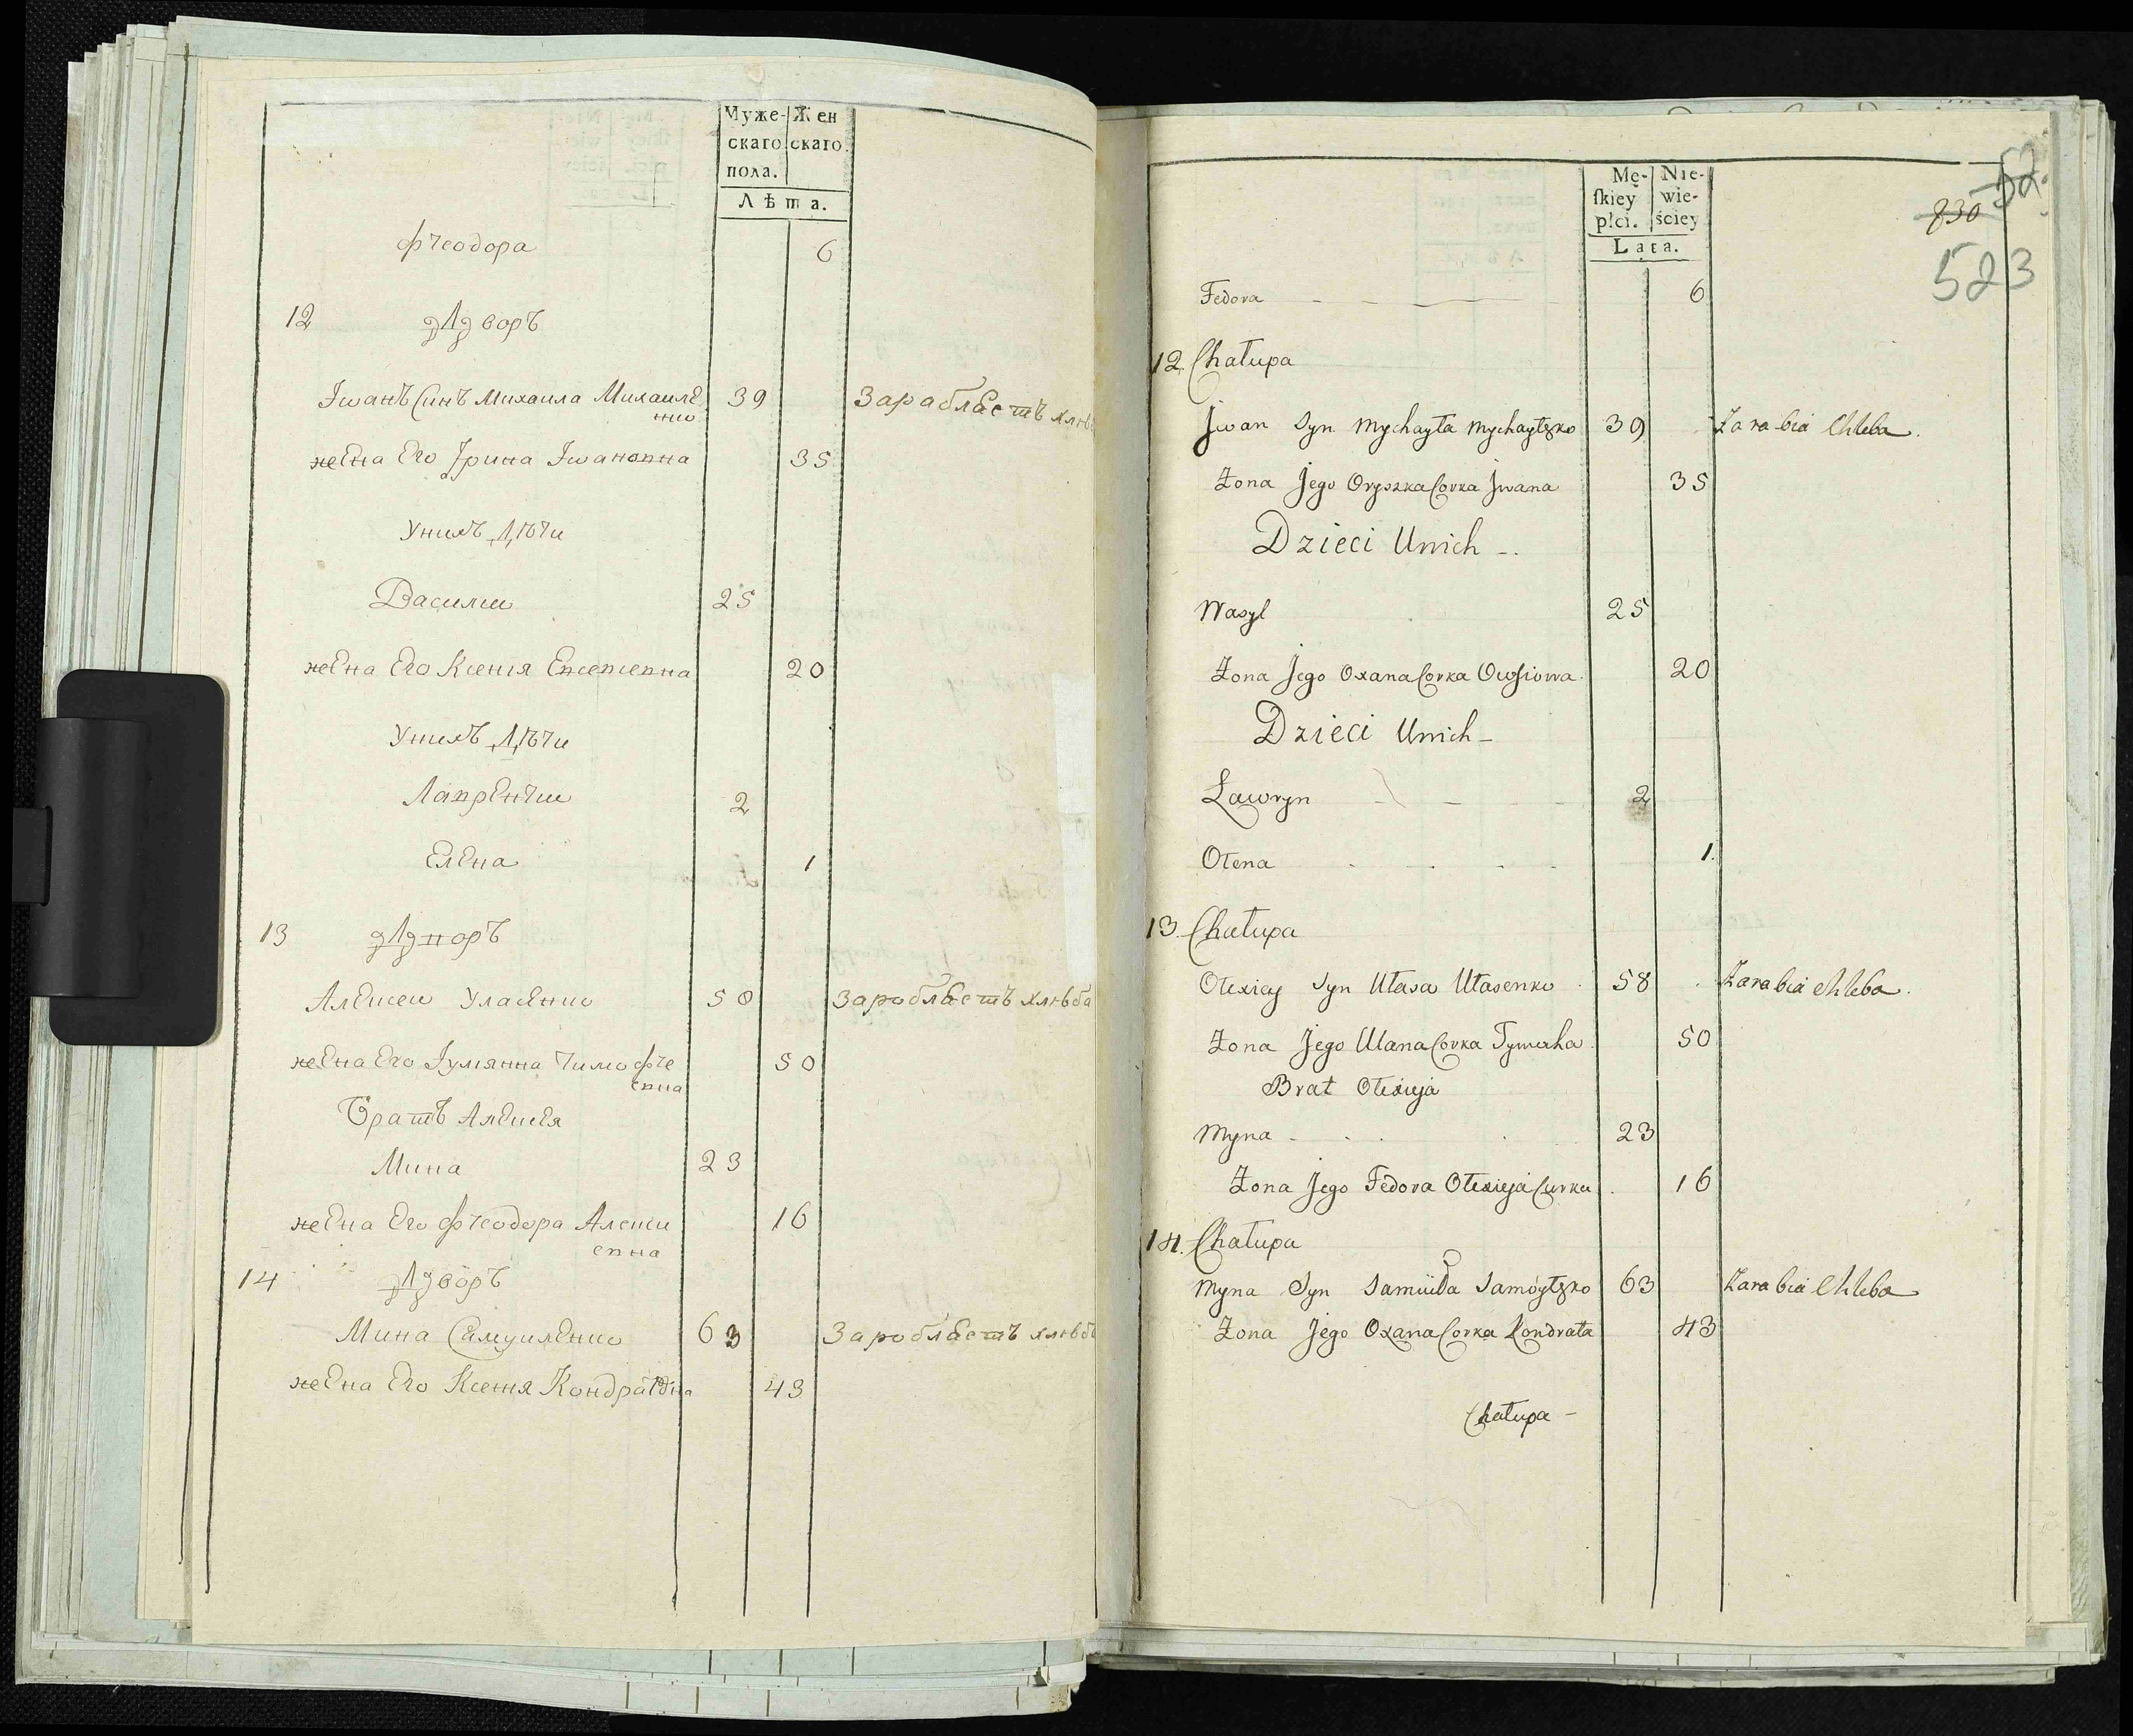 Муже- Жен
скаго скаго
пола.
Лѣта.
Феодора 6
12 Дворъ
Іванъ Синъ Михаила Михаиле 39 Зараблаетъ хлѣб
нко
жена Его Ірина Івановна 35
Унихъ Дѣти
Василии 25
жена Его Ксения Евсеиевна 20
Унихъ Дѣти
Лаврентии 2
Елена 1
13 Дворъ
Алексеи Уласенко 58 Зароблаетъ хлѣба
жена Его Іулиянна Тимофе 50
евна
Братъ Алексея
Мина 23
жена Его Феодора Алекси 16
евна
14 Дворъ
Мина Самуиленко 63 Зароблаетъ хлѣб
жена Его Ксения Кондратовна 43
Mę- Nie-
ſkiey wie-
płci. ściey
Lata.
52.
830
523
Fedora 6
12. Chałupa
Jwan Syn Mychayła Mychayłzko 39 Zarabia Chleba.
Żona Jego Oryszka Corka Jwana 35
Dzieci Unich -.
Wasyl 25
Żona Jego Oxana Corka Owsiowa. 20
Dzieci Unich -
Ławryn 2
Ołena 1.
13. Chałupa
Ołexiey Syn Ułasa Ułasenko 58 Zarabia chleba.
Żona Jego Ulana Corka Tymocha 50
Brat Ołexieja
Myna 23
Żona Jego Fedora Ołexieja Curka 16
14. Chałupa
Myna Syn Samuiła Samoyłzko 63 Zarabia Chleba
Żona Jego Oxana Corka Kondrata 43
Chałupa -